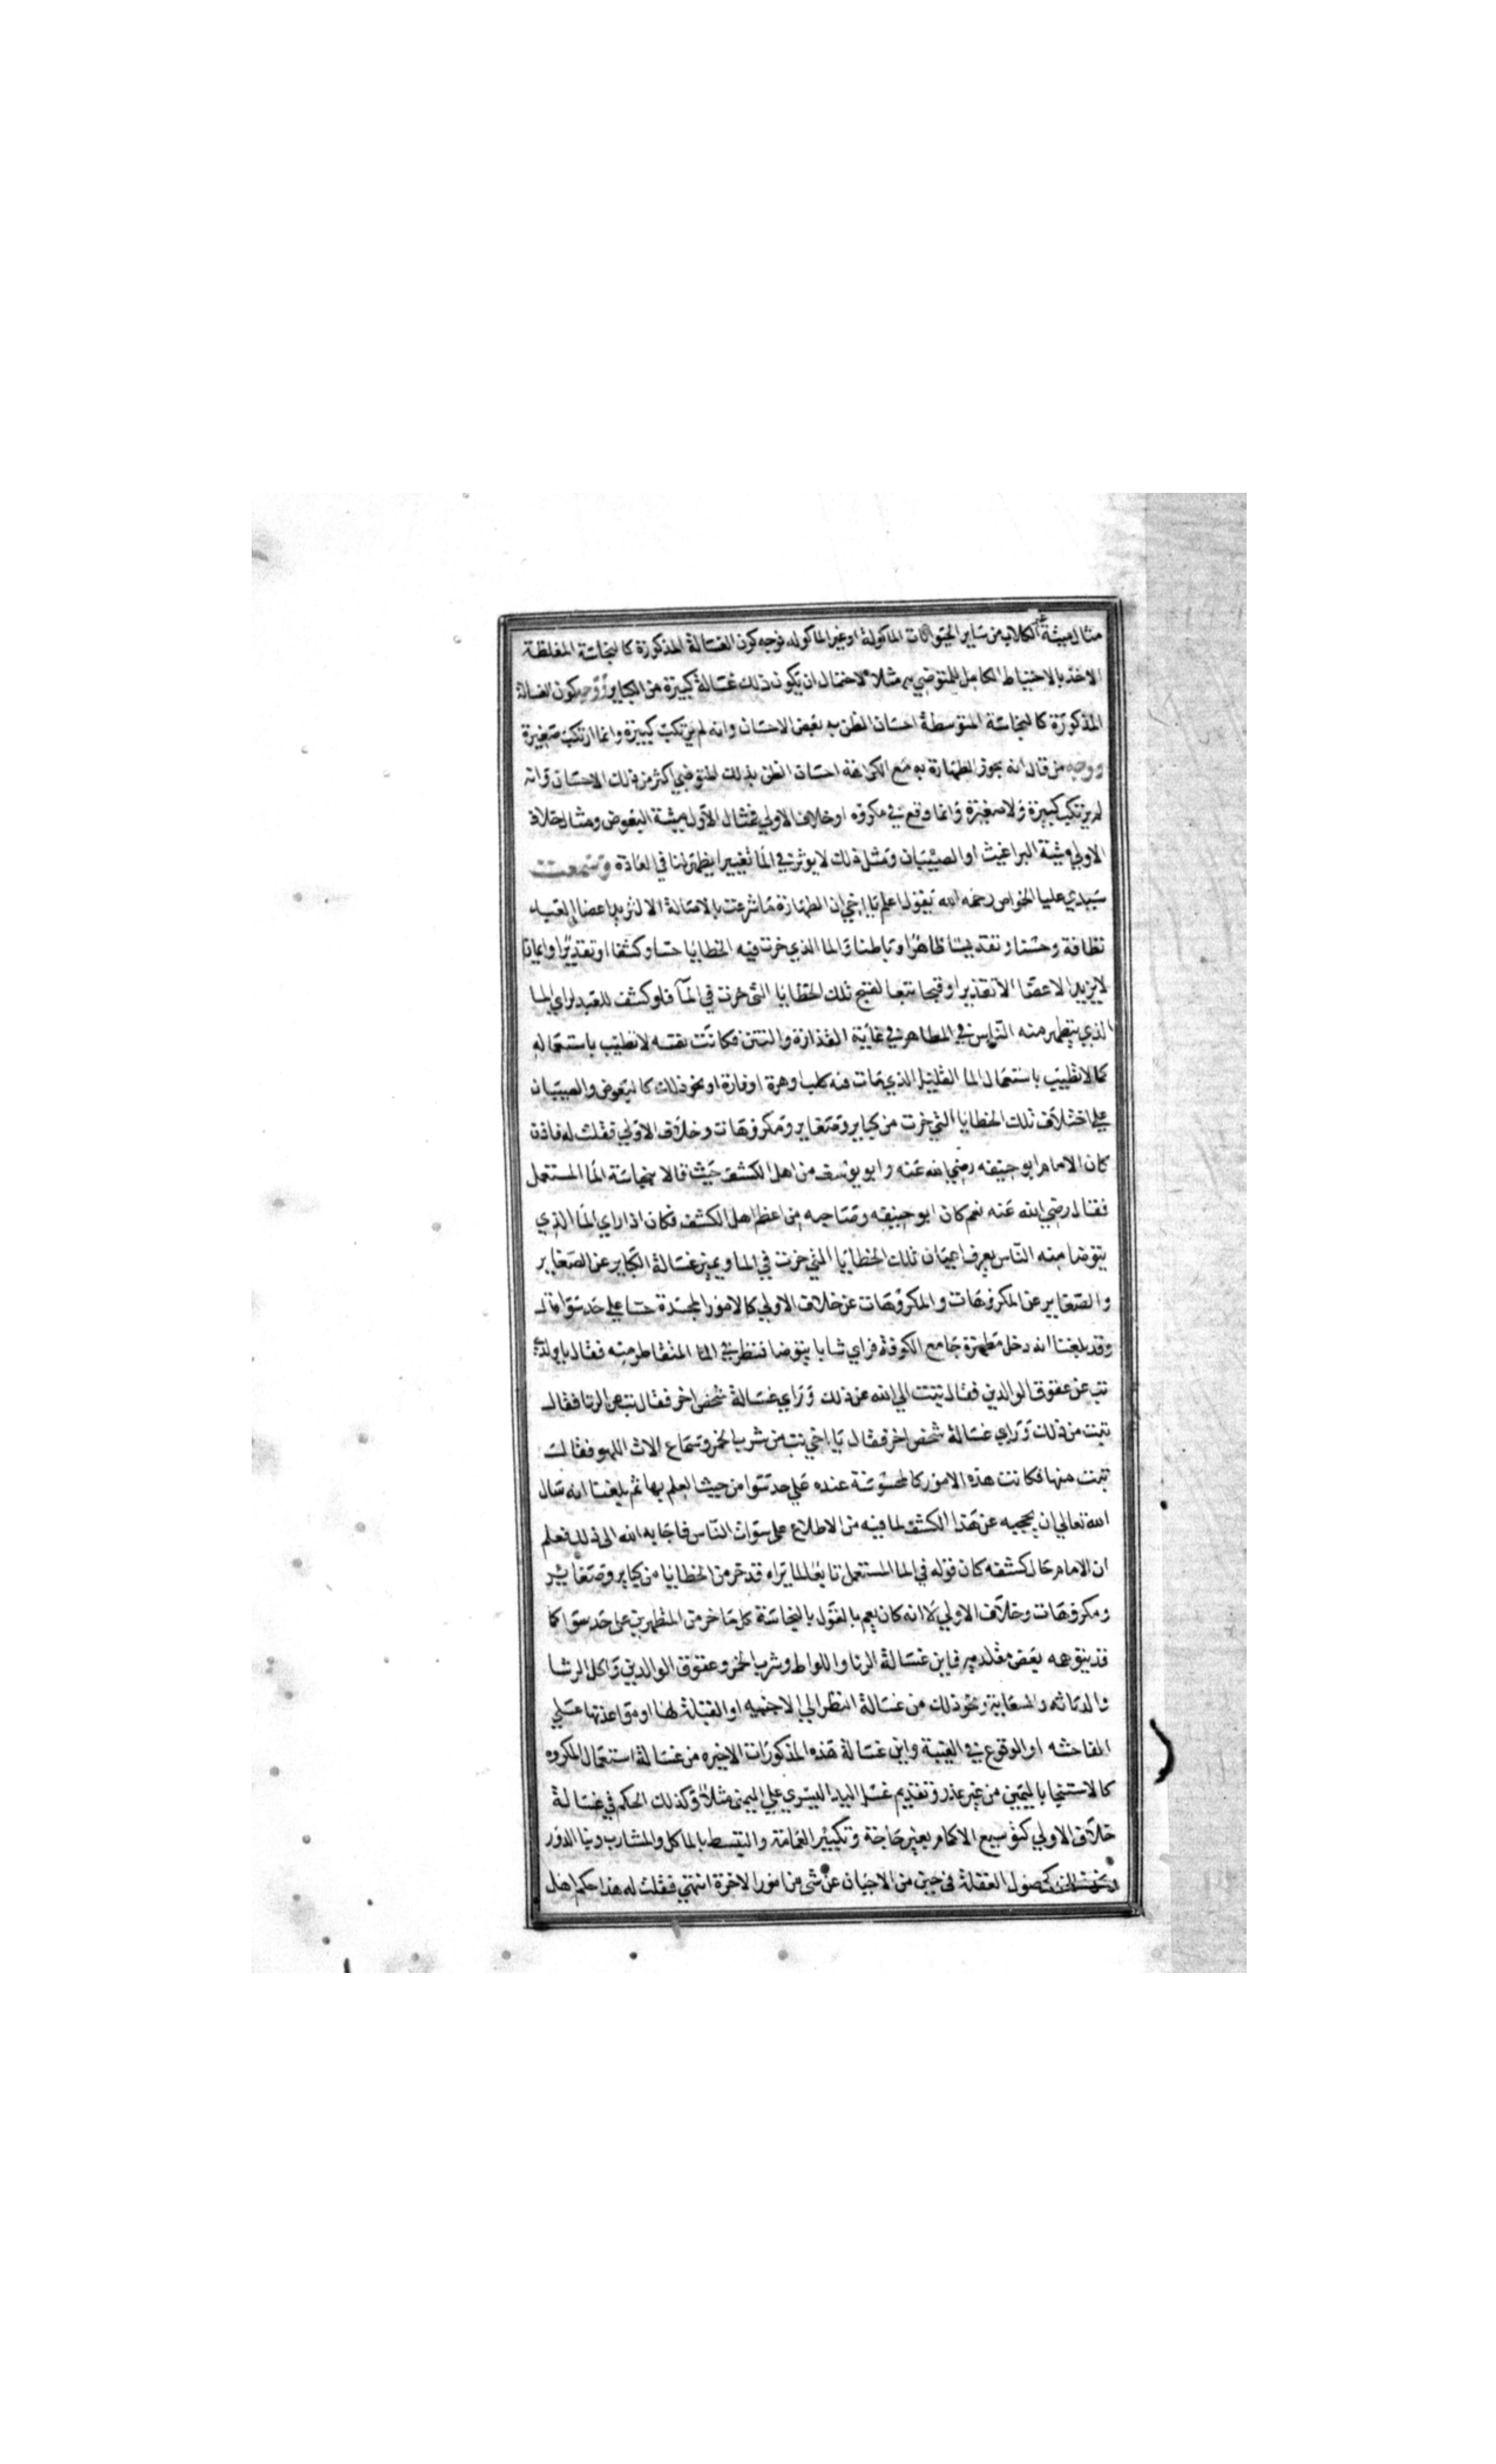 مثال ميتة غير الكلاب من ساير الحيوانات الماكولة او غير الماكوله فوجه كون الغسالة المذكورة كالنجاسة المغلظة
الاخذ بالاحتياط الكامل للمتوضي به مثلا لاحتمال ان يكون ذلك غسالة كبيرة من الكباير ووجه كون الغسالة
المذكورة كالنجاسة المتوسطة احسان الظن به بعض الاحسان وانه لم يرتكب كبيرة وانما ارتكب صغيرة
ووجه من قال انه يجوز الطهارة به مع الكراهة احسان الظن بذلك المتوضي اكثر من ذلك الاحسان وانه
لم يرتكب كبيرة ولا صغيرة وانما وقع في مكروه او خلاف الاولي فمثال الاول ميتة البعوض ومثال خلاف
الاولي ميتة البراغيث او الصيبان ومثل ذلك لا يوثر في الما تغييرا يظهر لنا في العادة وسمعت
سيدي عليا الخواص رحمه الله يقول اعلم يا اخي ان الطهارة ما شرعت بالاصالة الا لتزيد اعضا العبد
نظافة وحسنا وتقديسا ظاهرا وباطنا والما الذي خرت فيه الخطايا حسا وكشفا او تقديرا وايمانا
لا يزيد الاعضا الا تقذيرا وقبحا تبعا لقبح تلك الخطايا التي خرت في المآ فلو كشف للعبد لراي الما
الذي يتطهر منه الناس في المطاهر في غاية القذارة والنتن فكانت نفسه لا تطيب باستعماله
كما لا تطيب باستعمال الما القليل الذي مات فيه كلب او هرة او فارة او نحو ذلك كالبعوض والصيبان
علي اختلاف تلك الخطايا التي خرت من كباير وصغاير ومكروهات وخلاف الاولي فقلت له فاذن
كان الامام ابو حنيفه رضي الله عنه وابو يوسف من اهل الكشف حيث قالا بنجاسة الما المستعمل
فقال رضي الله عنه نعم كان ابو حنيفه وصاحبه من اعظم اهل الكشف فكان اذا راي الما الذي
يتوضا منه الناس يعرف اعيان تلك الخطايا التي خرت في الما ويميز غسالة الكباير عن الصغاير
والصغاير عن المكروهات والمكروهات عن خلاف الاولي كالامور المجسدة حسا علي حد سوا قال
وقد بلغنا انه دخل مطهرة جامع الكوفة فراي شابا يتوضا فنظر في الما المتقاطر منه فقال يا ولدي
تب عن عقوق الوالدين فقال تبت الي الله عن ذلك وراي غسالة شخص اخر فقال تب عن الزنا فقال
تبت من ذلك وراي غسالة شخص اخر فقال يا اخي تب من شرب الخمر وسماع الات اللهو فقال
تبت منها فكانت هذه الامور كالمحسوسة عنده علي حد سوا من حيث العلم بها ثم بلغنا انه سال
الله تعالي ان يحجبه عن هذا الكشف لما فيه من الاطلاع على سوات الناس فاجابه الله الى ذلك فعلم
ان الامام حال كشفه كان قوله في الما المستعمل تابعا لما يراه قد خر من الخطايا من كباير وصغاير
ومكروهات وخلاف الاولي لا انه كان يعم بالقول بالنجاسة كل ما خر من المتطهرين على حد سوا كما
قد يتوهمه بعض مقلديه فاين غسالة الزنا واللواط وشرب الخمر وعقوق الوالدين واكل الرشا
والدياثه والسعاية ونحو ذلك من غسالة النظر الي الاجنبيه او القبلة لها او مواعدتها علي
الفاحشه او الوقوع في الغيبة واين غسالة هذه المذكورات الاخيره من غسالة استعمال المكروه
كالاستنجا باليمين من غير عذر وتقديم غسل اليد اليسري علي اليمنى مثلا وكذلك الحكم في غسالة
خلاف الاولي كتوسيع الاكمام بغير حاجة وتكبير العمامة والتبسط بالماكل والمشارب وبنا الدور
كحصول الغفلة في حين من الاحيان عن شي من امور الاخرة انتهي فقلت له هذا حكم اهل